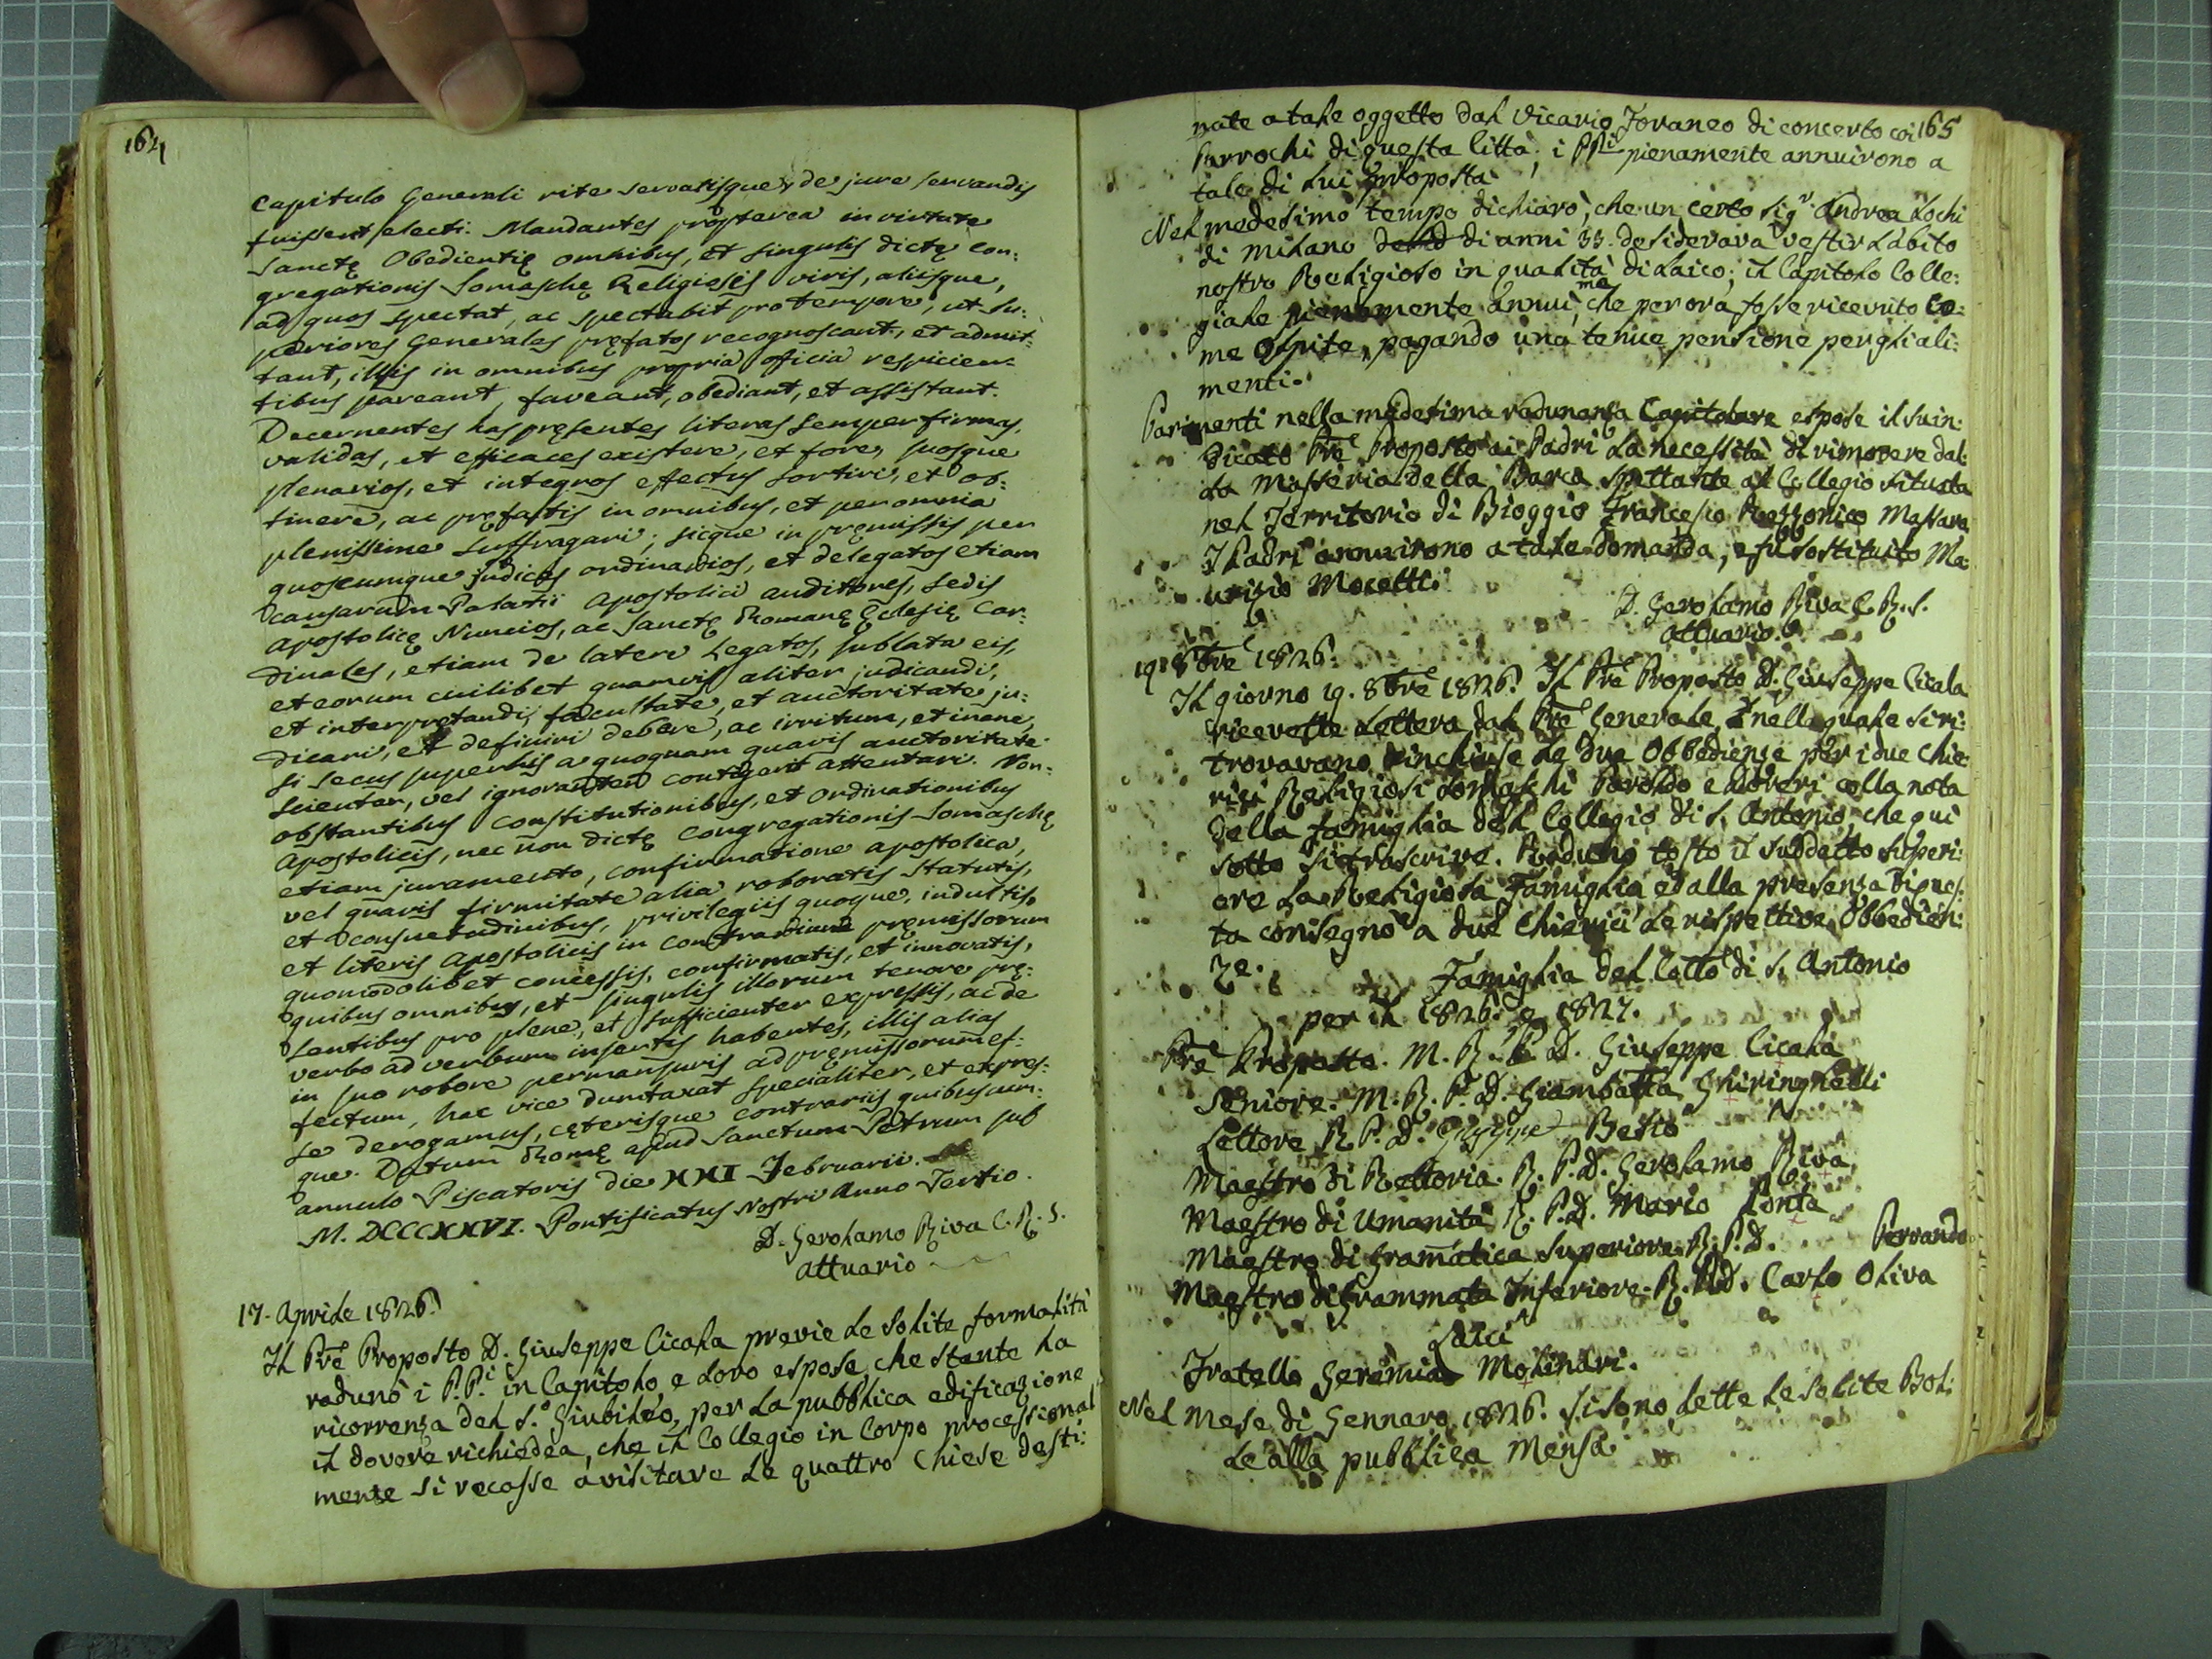 164
Capitulo Generali rite servatisque de jure servandis
fuissent electi. Mandantes propterea in virtute
Sanctę Obedientię omnibus, et singulis dictę Con:
gregationis Somaschę Religiosis viris, aliisque,
ad quos spectat, ac spectabit pro tempore, ut Su:
periores Generales pręfatos recognoscant, et admit:
tant, illis in omnibus propria officia respicien:
tibus pareant, faveant, obediant, et assistant.
Decernentes has pręsentes literas semper firmas,
validas, et efficaces existere, et fore, suosque
plenarios, et integros effectus sortiri, et ob:
tinere, ac pręfatis in omnibus, et per omnia
plenissime suffragari; sicque in pręmissis per
quoscumque judices ordinarios, et delegatos etiam
causarum Palatii Apostolici auditores, Sedis
Apostolicę Nuncios, ac Sanctę Romanę Eclesię Car:
dinales, etiam de latere Legatos, sublata eis,
et eorum cuilibet quamvis aliter judicandi,
et interpretandi, facultate, et auctoritate ju:
dicari, et definiri debere, ac irritum, et inane,
si secus super his a quoquam quavis auctoritate
scienter, vel ignoranter contigerit attentari. Non:
obstantibus Constitutionibus, et Ordinationibus
Apostolicis, nec non dictę Congregationis Somaschę
etiam juramento, confirmatione apostolica,
vel quavis firmitate alia roboratis Statutis,
et consuetudinibus, privilegiis quoque, indultis,
et literis Apostolicis in contrarium pręmissorum
quomodolibet concessis, confirmatis, et innovatis,
quibus omnibus, et singulis illorum tenore prę:
sentibus pro plene, et sufficienter expressis, ac de
verbo ad verbum insertis habentes, illis alias
in suo robore permansuris ad pręmissorum ef:
fectum, hac vice dumtaxat specialiter, et expres:
se derogamus, cęterisque contrariis quibuscum:
que. Datum Romę apud Sanctum Petrum sub
annulo Piscatoris die XXI Februarii.
M. DCCCXXVI. Pontificatus Nostri Anno Tertio.
D. Gerolamo Riva C. R. S.
Attuario
17. Aprile 1826.
Il Pre Proposto D. Giuseppe Cicala previe le solite formalità
radunò i P.P.i in Capitolo, e loro espose, che stante la
ricorrenza del S.o Giubileo, per la pubblica edificazione
il dovere richiedea, che il Collegio in Corpo processional
mente si recasse a visitare le quattro Chiese desti:
165
nate a tale oggetto dal Vicario Foraneo di concerto coi
Parrochi di questa Città; i PPi pienamente annuirono a
tale di lui proposta
Nel medesimo tempo dichiarò, che un certo Sigr Andrea Lochi
di Milano di anni 33. desiderava vestir l'abito
nostro Religioso in qualità di Laico; il Capitolo Colle:
giale pienamente annuì, me che per ora fosse ricevuto Co:
me Ospite, pagando una tenue pensione per gli ali:
menti.
Parimenti nella medesima radunanza Capitolare espose il suin:
dicato Pre Proposto ai Padri la necessità di rimovere dal:
la Masseria della Barca spettante al Collegio situata
nel Territorio di Bioggio Francesco Rezzonico Massaro
I Padri annuirono a tale domanda, e fu sostituito Ma:
urizio Mocetti.
D. Gerolamo Riva C. R. S.
Attuario.
19. 8bre 1826.
Il giorno 19. 8bre 1826. Il Pre Proposto D. Giuseppe Cicala
ricevette Lettera dal Pre Generale nella quale si ri:
trovavano rinchiuse le due Obbedienze per i due Chie:
rici Religiosi Somaschi Paroldo e coll nota
della famiglia del Collegio di S. Antonio, che qui
sotto si trascrive. Radunò tosto il suddetto Superi:
ore la Religiosa Famiglia ed alla presenza di ques:
ta consegnò a due Chierici le rispettive Obbedien:
ze.
Famiglia del Collo di S. Antonio
per il 1826. e 1827.
Pre Proposto. M. R. P. D. Giuseppe Cicala
Seniore. M. R. P. D. Giambatta Ghiringhelli
Lettore R. P. D. Giuseppe Besio
Maestro di Rettorica. R. P. D. Gerolamo Riva
Maestro di Umanità. R. P. D. Mario Ponta
Maestro di Gramatica Superiore R. P. D. Ferrando
Maestro di Grammata Inferiore. R. P. D. Carlo Oliva
Laici
Fratello Geremia Molinari.
Nel Mese di Gennaro 1826. si sono lette le solite Bol:
le alla pubblica Mensa.